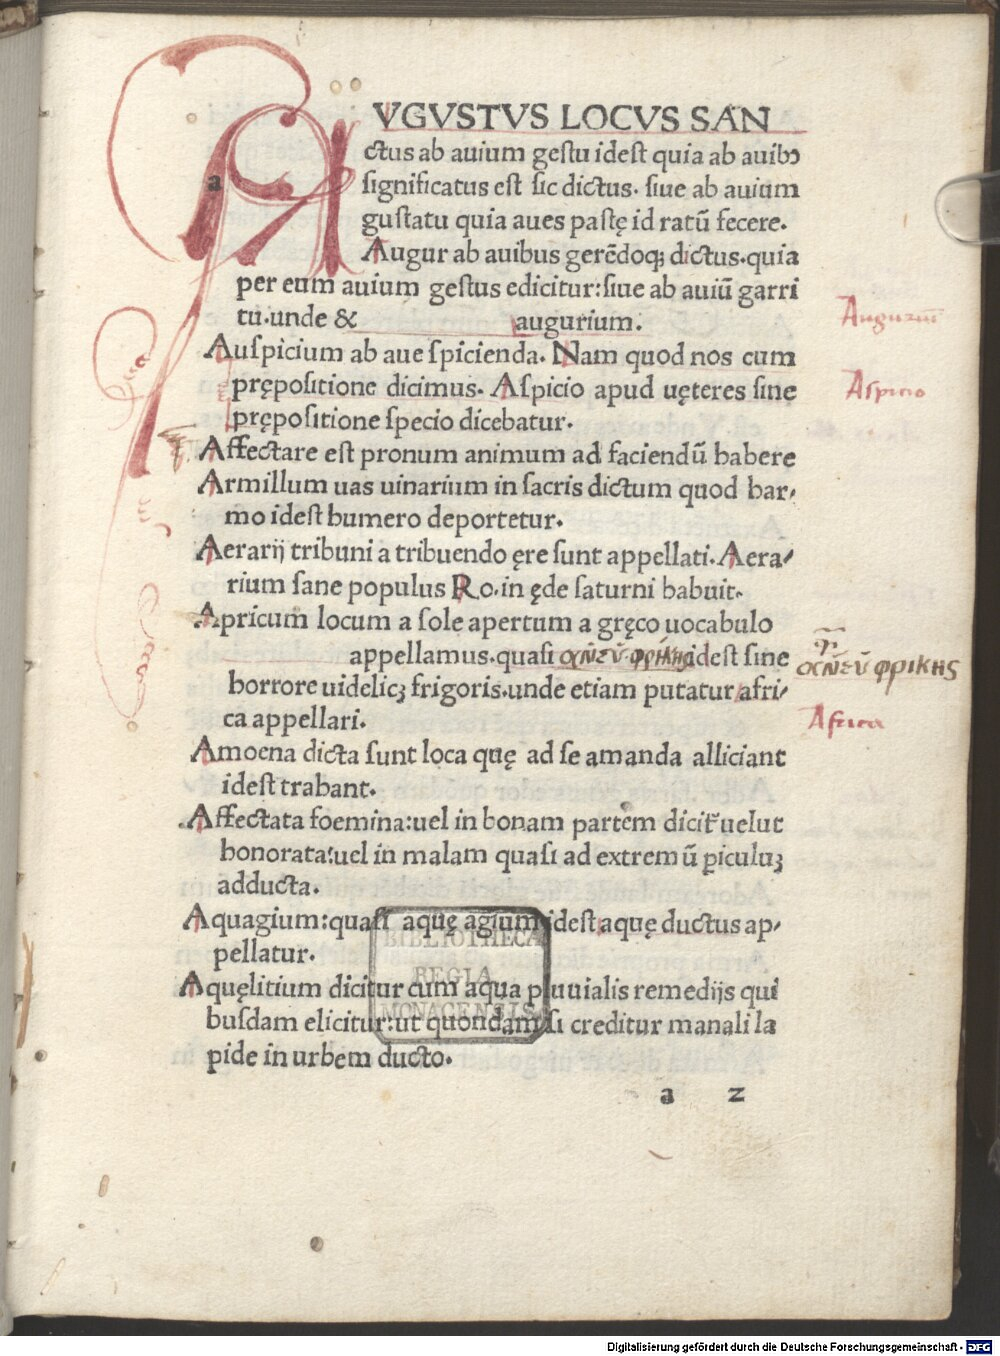 AVGVSTVS LOCVS SAN
ctus ab auium gestu idest quia ab auibꝰ
significatus est sic dictus. siue ab auium
gustatu quia aues pastę id ratū fecere.
Augur ab auibus gerēdoqꝫ dictus.quia
per eum auium gestus edicitur:siue ab auiū garri
tu.unde & augurium.
Auguriū
Auspicium ab aue spicienda. Nam quod nos cum
prępositione dicimus. Aspicio apud uęteres sine
Aspicio
prępositione specio dicebatur.
Affectare est pronum animum ad faciendū habere
Armillum uas uinarium in sacris dictum quod har/
mo idest humero deportetur.
Aerarij tribuni a tribuendo ęre sunt appellati. Aera/
rium sane populus Ro.in ęde saturni habuit.
Apricum locum a sole apertum a gręco uocabulo
appellamus.quasi ἄνευ φρίκης idest sine
ἄνευ φρικης
horrore uidelicꝫ frigoris.unde etiam putatur afri/
ca appellari.
Africa
Amoena dicta sunt loca quę ad se amanda alliciant
idest trahant.
Affectata foemina:uel in bonam partem dicit̄ uelut
honorata:uel in malam quasi ad extremū ꝑiculuꝫ
adducta.
Aquagium:quasi aquę agium idest aquę ductus ap/
pellatur.
Aquęlitium dicitur cum aqua pluuialis remedijs qui
busdam elicitur:ut quondam si creditur manali la
pide in urbem ducto.
BIBLIOTHECA
REGIA
MONACENSIS
a 2
Digitalisierung gefördert durch die Deutsche Forschungsgemeinschaft - DFG